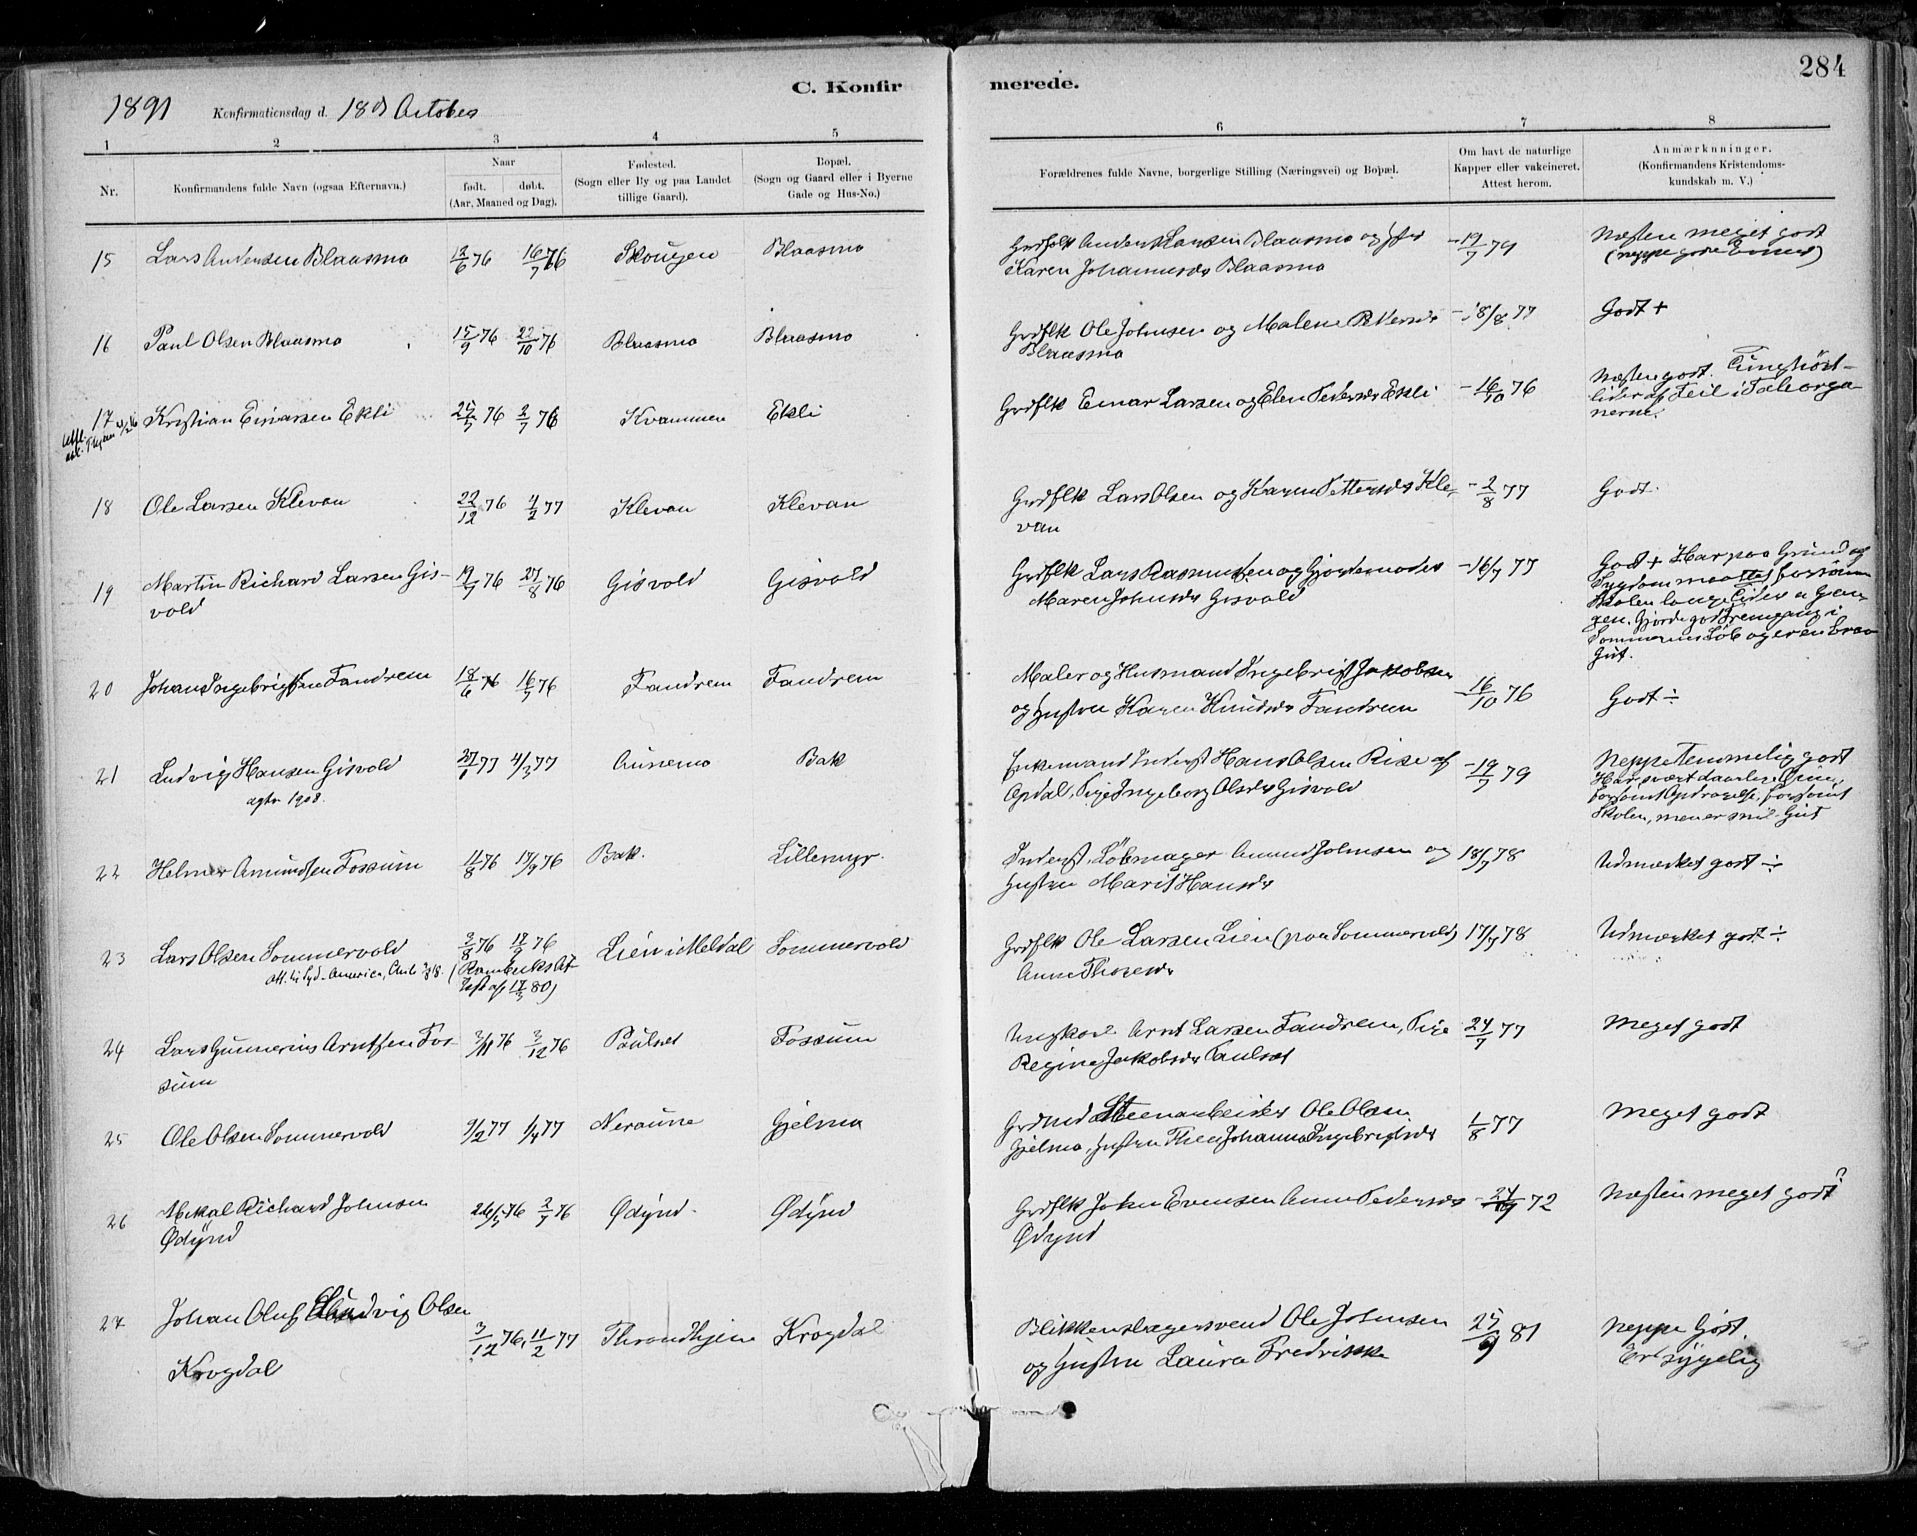 284
C. Konfirmerede.
1891 Konfirmationsdag d. 18de October
1 2 3 4 5 6 7 8
Nr.
Konfirmandens fulde Navn (ogsaa Efternavn.)
Naar
født. døbt.
(Aar, Maaned og Dag).
Fødested.
(Sogn eller By og paa Landet
tillige Gaard).
Bopæl.
(Sogn og Gaard eller i Byerne
Gade og Hus-No.)
Forældrenes fulde Navne, borgerlige Stilling (Næringsvei) og Bopæl.
Om havt de naturlige
Kapper eller vakcineret.
Attest herom.
Anmærkninger.
(Konfirmandens Kristendoms-
kundskab m. V.)
15 Lars Andersen Blaasmo 12/6 76 16/7 76 Skougen Blaasmo Grdfolk Anders Larsen Blaasmo og - 19/7 79 Næsten meget godt
Karen Johannesdr Blaasmo (neppe gode Evner)
16 Paul Olsen Blaasmo 15/9 76 22/10 76 Blaasmo Blaasmo Grdflk Ole Johnsen og Malene Petersdr - 18/8 77 Godt +
Blaasmo
17 Kristian Einarsen Ekli 25/5 76 2/7 76 Kvammen Ekli Grdflk Einar Larsen og Elen Pedersdr Ekli - 16/10 76 Næsten godt. Tunghørt -
lider af Feil i Taleorga-
nerne.
18 Ole Larsen Klevan 22/12 76 4/2 77 Klevan Klevan Grdflk Lars Olsen og Karen Pettersdr Kle- - 2/8 77 Godt.
van
19 Martin Richard Larsen Gis- 19/7 76 27/8 76 Gisvold Gisvold Grdflk Lars Rasmussen og Gjordemoder - 16/7 77 Godt + Har paa Grund af
vold Maren Johnsdr Gisvold Sygdom maattet forsømme
Skolen lange Tider a Gan-
gen. Gjorde god Fremgang i
Sommerens Løb og er en brav
Gut.
20 Johan Ingebrigtsen Fandrem 18/6 76 16/7 76 Fandrem Fandrem Maler og Husmand Ingebrigt Jakobsen - 16/10 76 Godt ÷
og Hustru Karen Knudsdr Fandrem
21 Ludvig Hansen Gisvold 27/1 77 4/3 77 Aunemo Bak Enkemand Inderst Hans Olsen Rise af - 19/7 79 Neppe Temmelig godt
1908. Opdal, Pige Ingeborg Olsdr Gisvold Har svært daarlige Evne,
forsømt Opdragelse, forsømt
Skolen, men er snil Gut
22 Helmer Amundsen Fossum 11/8 76 17/9 76 Bak. Lillemyr. Inderst, Løbmager Amund Johnsen og 18/7 78 Udmærket godt ÷
Hustru Marit Hansdr
23 Lars Olsen Sommervold 3/8 76 17/9 76 Lien i Meldal Sommervold Grdflk Ole Larsen Lien (paa Sommervold) 17/7 78 Udmærket godt ÷
att. til Syd-America, Anne Thoresdr
24 Lars Gunnerius Arntsen Fos- 3/11 76 3/12 76 Paulset Fossum Ungkarl Arnt Larsen Fandrem, Pige 24/7 77 Meget godt
sum Regine Jakobsdr Paulset
25 Ole Olsen Sommervold 9/2 77 1/4 77 Neraune Gjelmo Grdmd Steenarbeider Ole Olsen 1/8 77 Meget godt
Gjelmo, Hustru Thea Johanna Ingebrigtsdr
26 Mikal Richard Johnsen 26/5 76 2/7 76 Ødynd Ødynd Grdflk John Evensen Anne Pedersdr - 24/9 72 Næsten meget godt
Ødynd Ødynd
27 Johan Oluf Ludvig Olsen 3/12 76, 11/2 77 Throndhjem Krogdal Blikkenslagersvend Ole Johnsen 25/9 81 Neppe Godt.
Krogdal og Hustru Laura Fredrikke Er sygelig